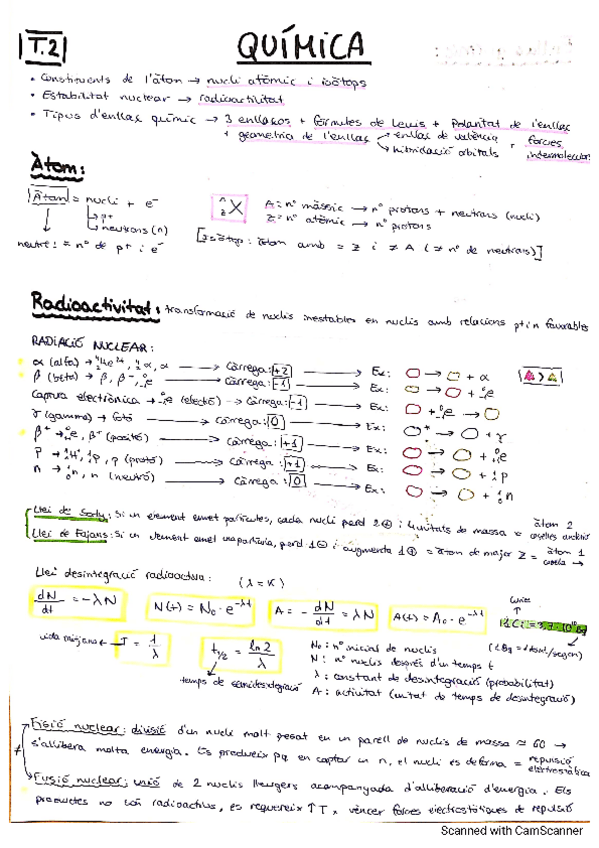 T.2 QUÍMICA
• Constituents de l'àtom → nucli atòmic i isòtops
• Estabilitat nuclear → radioactivitat
• Tipus d'enllaç químic → 3 enllaços + fórmules de Lewis + Polaritat de l'enllaç
+ geometria de l'enllaç → enllaç de valència, forces
hibridació orbitals intermoleculars
Àtom:
Àtom = nucli + e⁻
p⁺
neutrons (n)
neutre! = nº de p⁺ i e⁻
A Z X
A = nº màssic → nº protons + neutrons (nucli)
Z = nº atòmic → nº protons
[Isòtop: àtom amb = Z i ≠ A (≠ nº de neutrons)]
Radioactivitat: transformació de nuclis inestables en nuclis amb relacions p+ i n favorables
RADIACIÓ NUCLEAR:
α (alfa) → ⁴₂He²⁺, ⁴₂α, α → Càrrega: +2 → Ex: → + α
β (beta) → β, β⁻, ⁰₋₁e → Càrrega: -1 → Ex: → + ⁰₋₁e
Captura electrònica → ⁰₋₁e (electró) → Càrrega: -1 → Ex: + ⁰₋₁e →
γ (gamma) → fotó → Càrrega: 0 → Ex: * → + γ
β⁺ → ⁰₊₁e, β⁺ (positó) → Càrrega: +1 → Ex: → + ⁰₊₁e
P → ¹₁H⁺, ¹₁p, p (protó) → Càrrega: +1 → Ex: → + ¹₁p
n → ¹₀n, n (neutró) → Càrrega: 0 → Ex: → + ¹₀n
Llei de Soddy: Si un element emet partícules, cada nucli perd 2⊕ i 4 unitats de massa = àtom 2
caselles
Llei de Fajans: Si un element emet una partícula, perd 1⊖ i augmenta 1⊕ = àtom de major Z = àtom 1
casella →
Llei desintegració radioactiva: (λ = K)
dN/dt = -λN
N(t) = N₀ · e^-λt
A = - dN/dt = λN
A(t) = A₀ · e^-λt
Curies
1 Ci = 3,7 · 10¹⁰ Bq
(1 Bq = 1 /segon)
vida mitjana ← T = 1/λ
t₁/₂ = ln 2/λ
temps de semidesintegració
N₀: nº inicial de nuclis
N: nº nuclis després d'un temps t
λ: constant de desintegració (probabilitat)
A: activitat (unitat de temps de desintegració)
≠ Fisió nuclear: divisió d'un nucli molt pesat en un parell de nuclis de massa ≈ 60 →
s'allibera molta energia. Es produeix pq en captar un n, el nucli es deforma = repulsió
electrostàtica
Fusió nuclear: unió de 2 nuclis lleugers acompanyada d'alliberació d'energia. Els
productes no són radioactius, es requereix ↑T x vèncer forces electrostàtiques de repulsió
Scanned with CamScanner